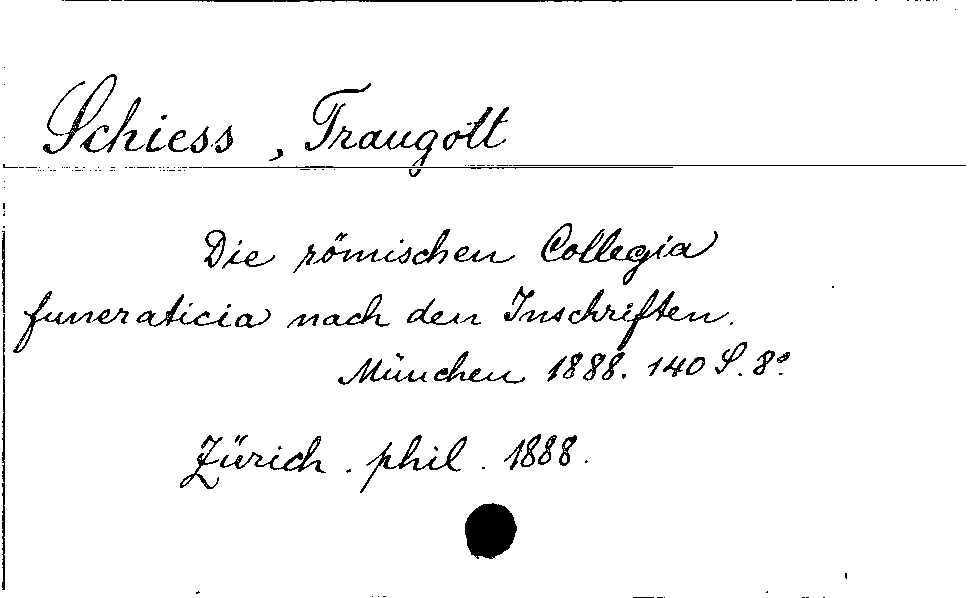 Schiess, Traugott
Die römischen Collegia
funeraticia nach den Inschriften.
München 1888. 140 S. 8°
Zürich. phil. 1888.